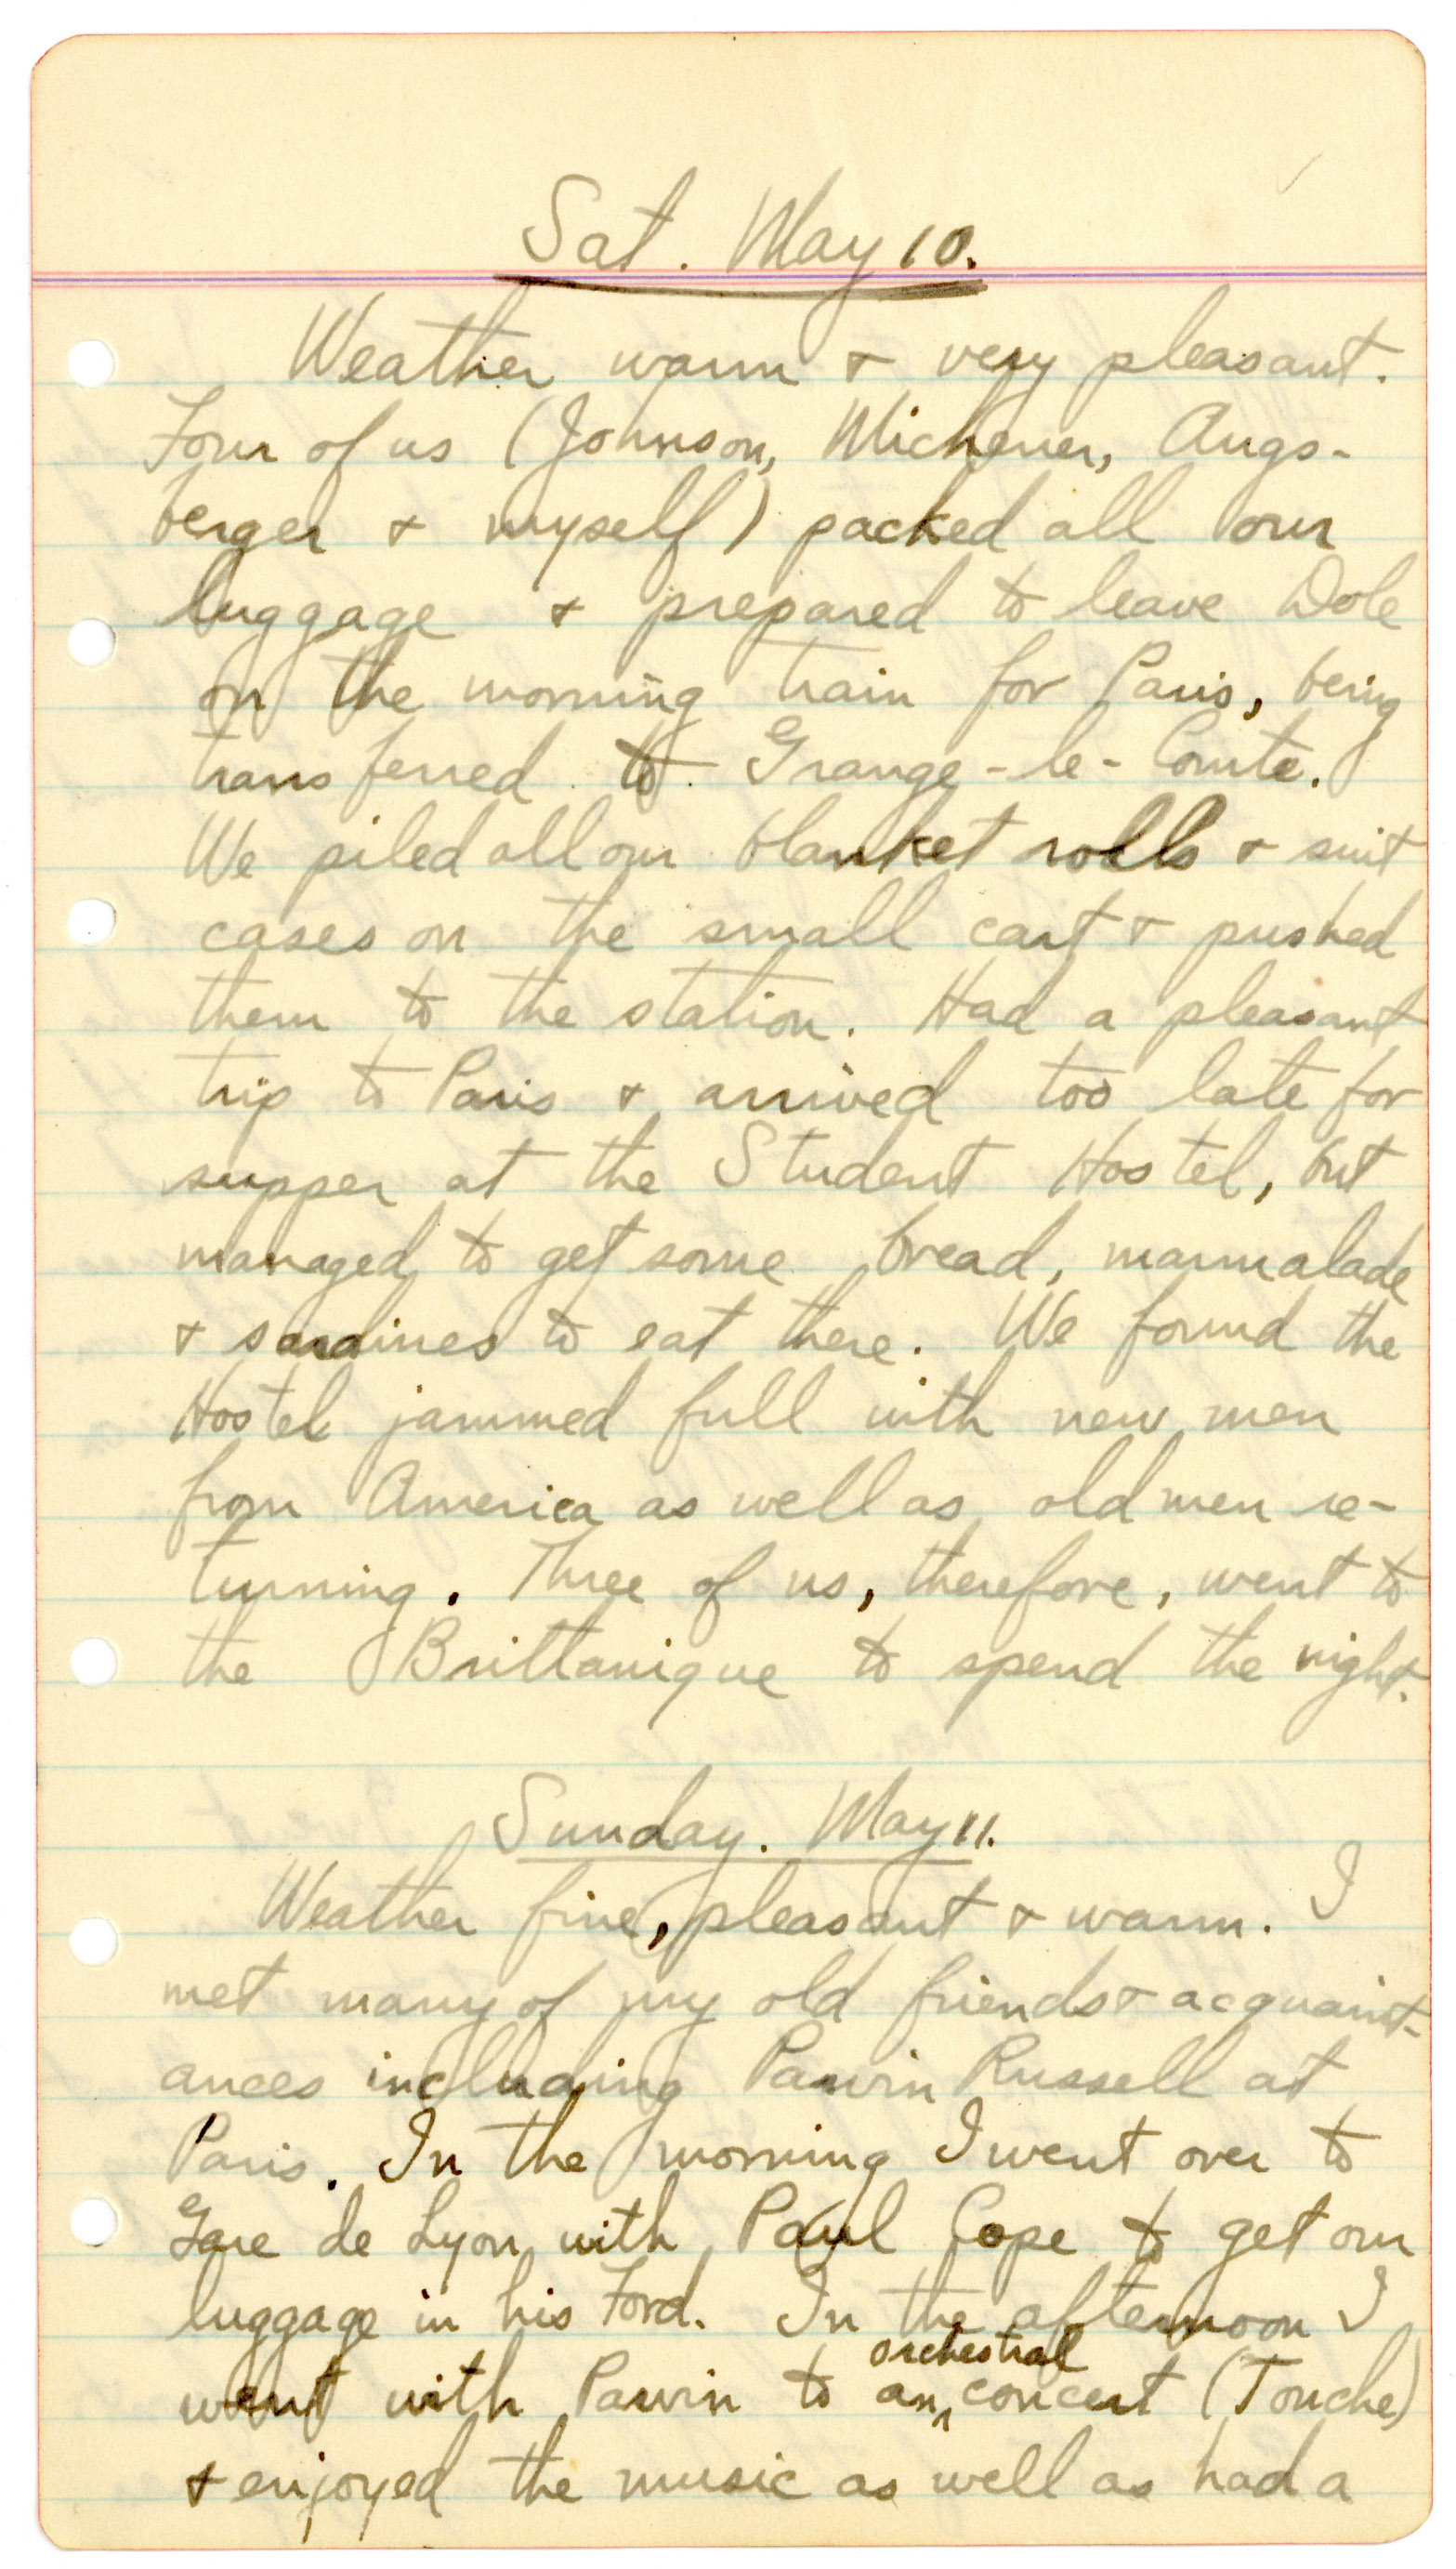 Sat. May 10.
Weather warm & very pleasant.
Four of us (Johnson, Michener, Augs-
berger & myself) packed all our
luggage & prepared to leave Dole
on the morning train for Paris, being
transferred to Grange-le-Comte.
We piled all our blanket rolls & suit
cases on the small cart & pushed
them to the station. Had a pleasant
trip to Paris & arrived too late for
supper at the Student Hostel, but
managed to get some bread, marmalade
& sardines to eat there. We found the
Hostel jammed full with new men
from America as well as old men re-
turning. Three of us, therefore, went to
the Brittanique to spend the night.
Sunday. May 11.
Weather fine, pleasant & warm. I
met many of my old friends & acquaint-
ances including Parvin Russell at
Paris. In the morning I went over to
Gare de Lyon with Paul Cope to get our
luggage in his Ford. In the afternoon I
went with Parvin to an orchestral concert (Touche)
& enjoyed the music as well as had a